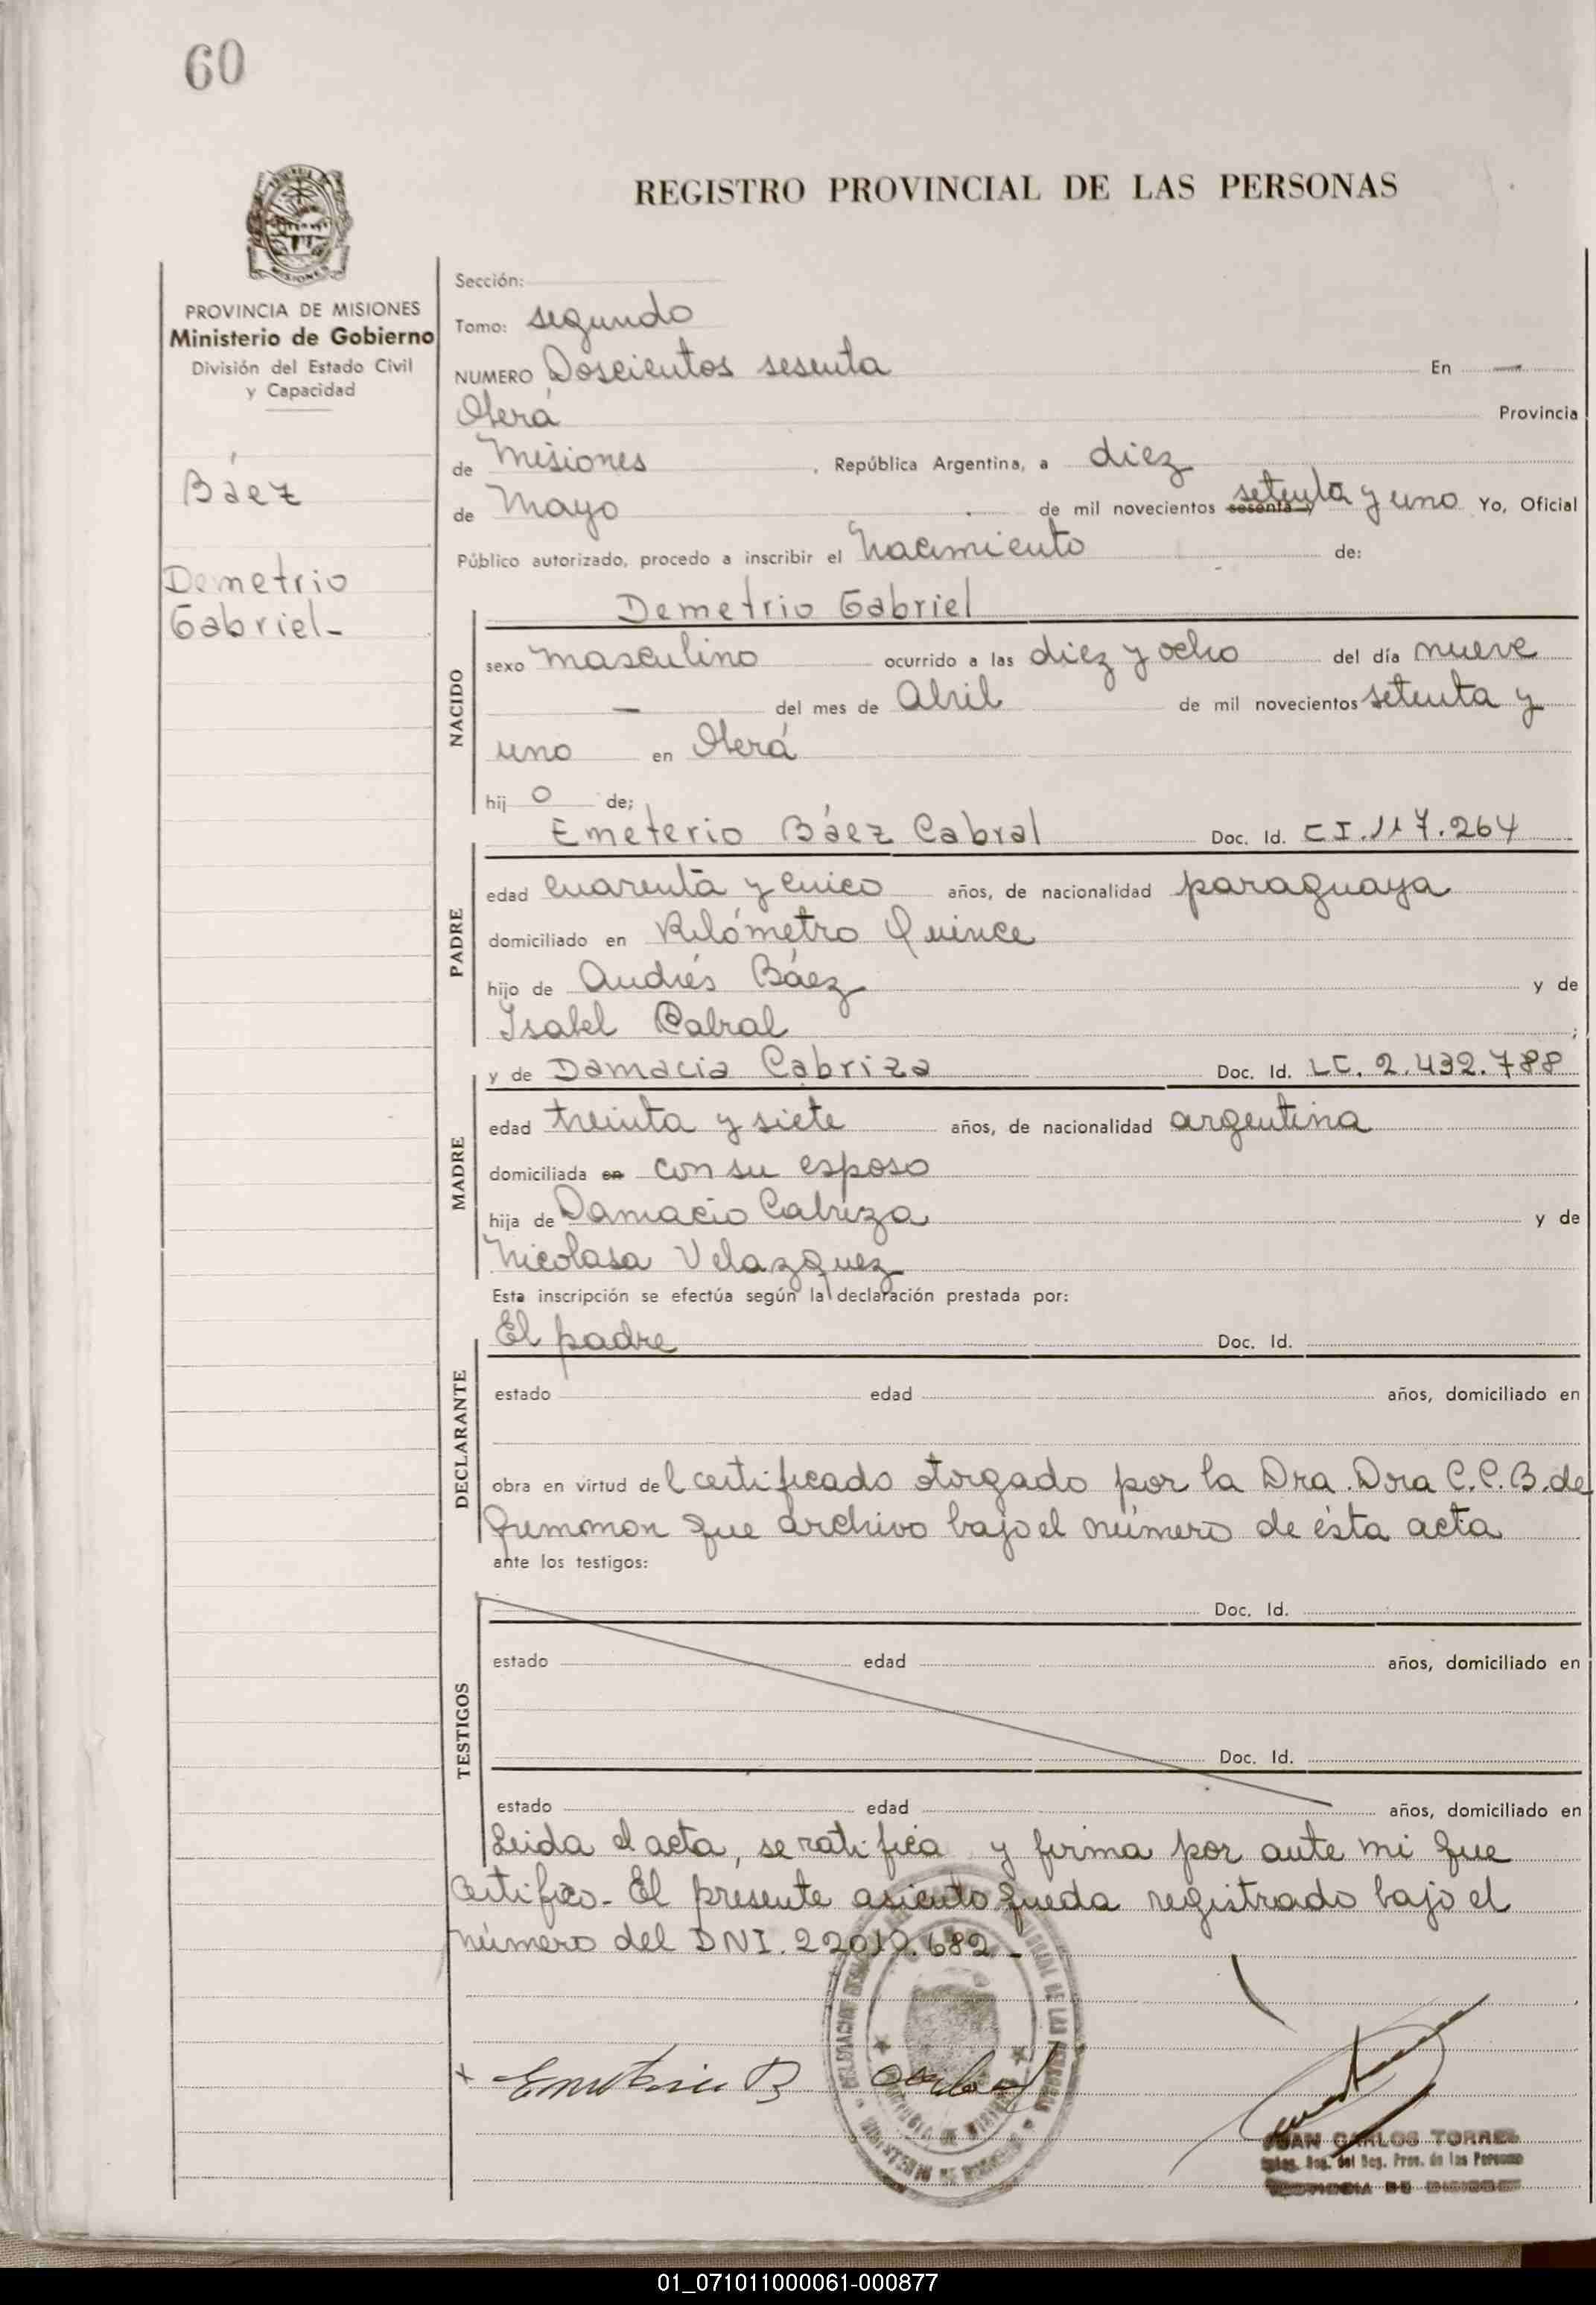 60
REGISTRO PROVINCIAL DE LAS PERSONAS
PROVINCIA DE MISIONES
Ministerio de Gobierno
División del Estado Civil
y Capacidad
Báez
Demetrio
Gabriel-
Sección:
Tomo: segundo
NUMERO Doscientos sesenta En —
Oberá Provincia
de Misiones , República Argentina, a diez
de Mayo de mil novecientos sesenta y setenta y uno Yo, Oficial
Público autorizado, procedo a inscribir el Nacimiento de:
Demetrio Gabriel
NACIDO
sexo masculino ocurrido a las diez y ocho del día nueve
— del mes de Abril de mil novecientos setenta y
uno en Oberá
hij o de;
Emeterio Báez Cabral Doc. Id. C.I. 117.264
PADRE
edad cuarenta y cinco años, de nacionalidad paraguaya
domiciliado en Kilómetro Quince
hijo de Andrés Báez y de
Isabel Cabral ;
y de Damacia Cabriza Doc. Id. LC. 2.432.788
MADRE
edad treinta y siete años, de nacionalidad argentina
domiciliada en con su esposo
hija de Damacio Cabriza y de
Nicolasa Velazquez
Esta inscripción se efectúa según la declaración prestada por:
El padre Doc. Id.
DECLARANTE
estado edad años, domiciliado en
obra en virtud del certificado otorgado por la Dra. Dora C.C.B. de
que archivo bajo el número de ésta acta
ante los testigos:
TESTIGOS
Doc. Id.
estado edad años, domiciliado en
Doc. Id.
estado edad años, domiciliado en
Leida el acta, se ratifica y firma por ante mi que
certifico. El presente asiento queda registrado bajo el
número del DNI. 22010.682-
x Emeterio B Cabral
JUAN CARLOS TORRES
del Reg. Prov. de las Personas
PROVINCIA DE MISIONES
01_071011000061-000877